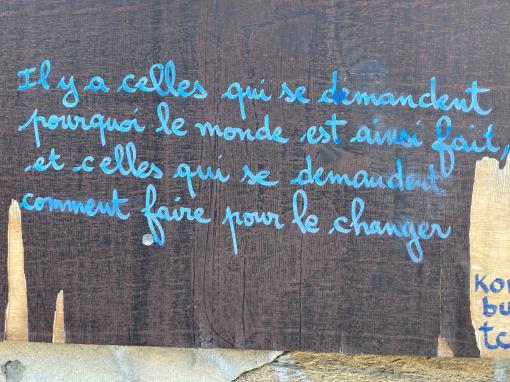 Il y a celles qui se demandent
pourquoi le monde est ainsi fait,
et celles qui se demandent
comment faire pour le changer
bu